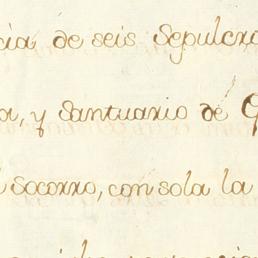 cia de seis Sepulcr
a, y Santuario de
l socorro, con sola la